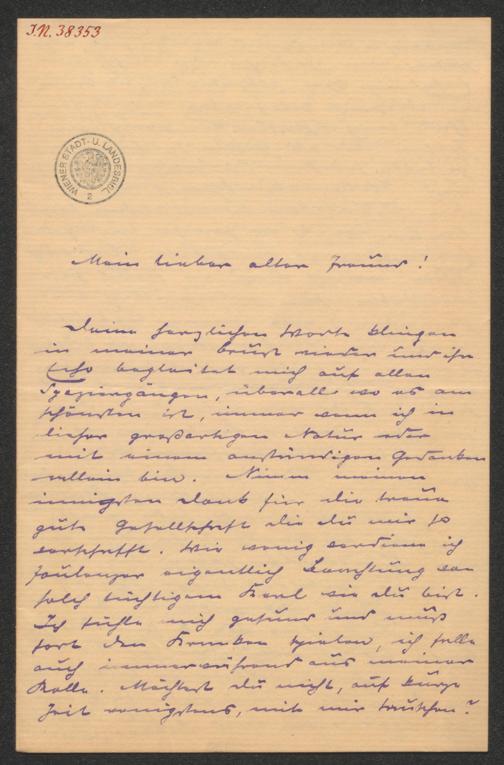 I.N. 38353
WIENER STADT- U. LANDESBIBL.
2
Mein lieber alter Freund!
Deine herzlichen Worte klingen
in meiner Brust wieder und ihr
Echo begleitet mich auf allen
Spaziergängen, überall wo es am
schönsten ist, immer wenn ich in
dieser großartigen Natur oder
mit einem anständigen Gedanken
allein bin. Nimm meinen
innigsten Dank für die treue
gute Gesellschaft die du mir so
verschafft. Wie wenig verdiene ich
Faulenzer eigentlich Beachtung von
solch tüchtigem Kerl wie du bist.
Ich fühle mich gesund und muß
dort den Kranken spielen, ich falle
auch immerwährend aus meiner
Rolle. Möchtest du nicht, auf kurze
Zeit wenigstens, mit mir tauschen?